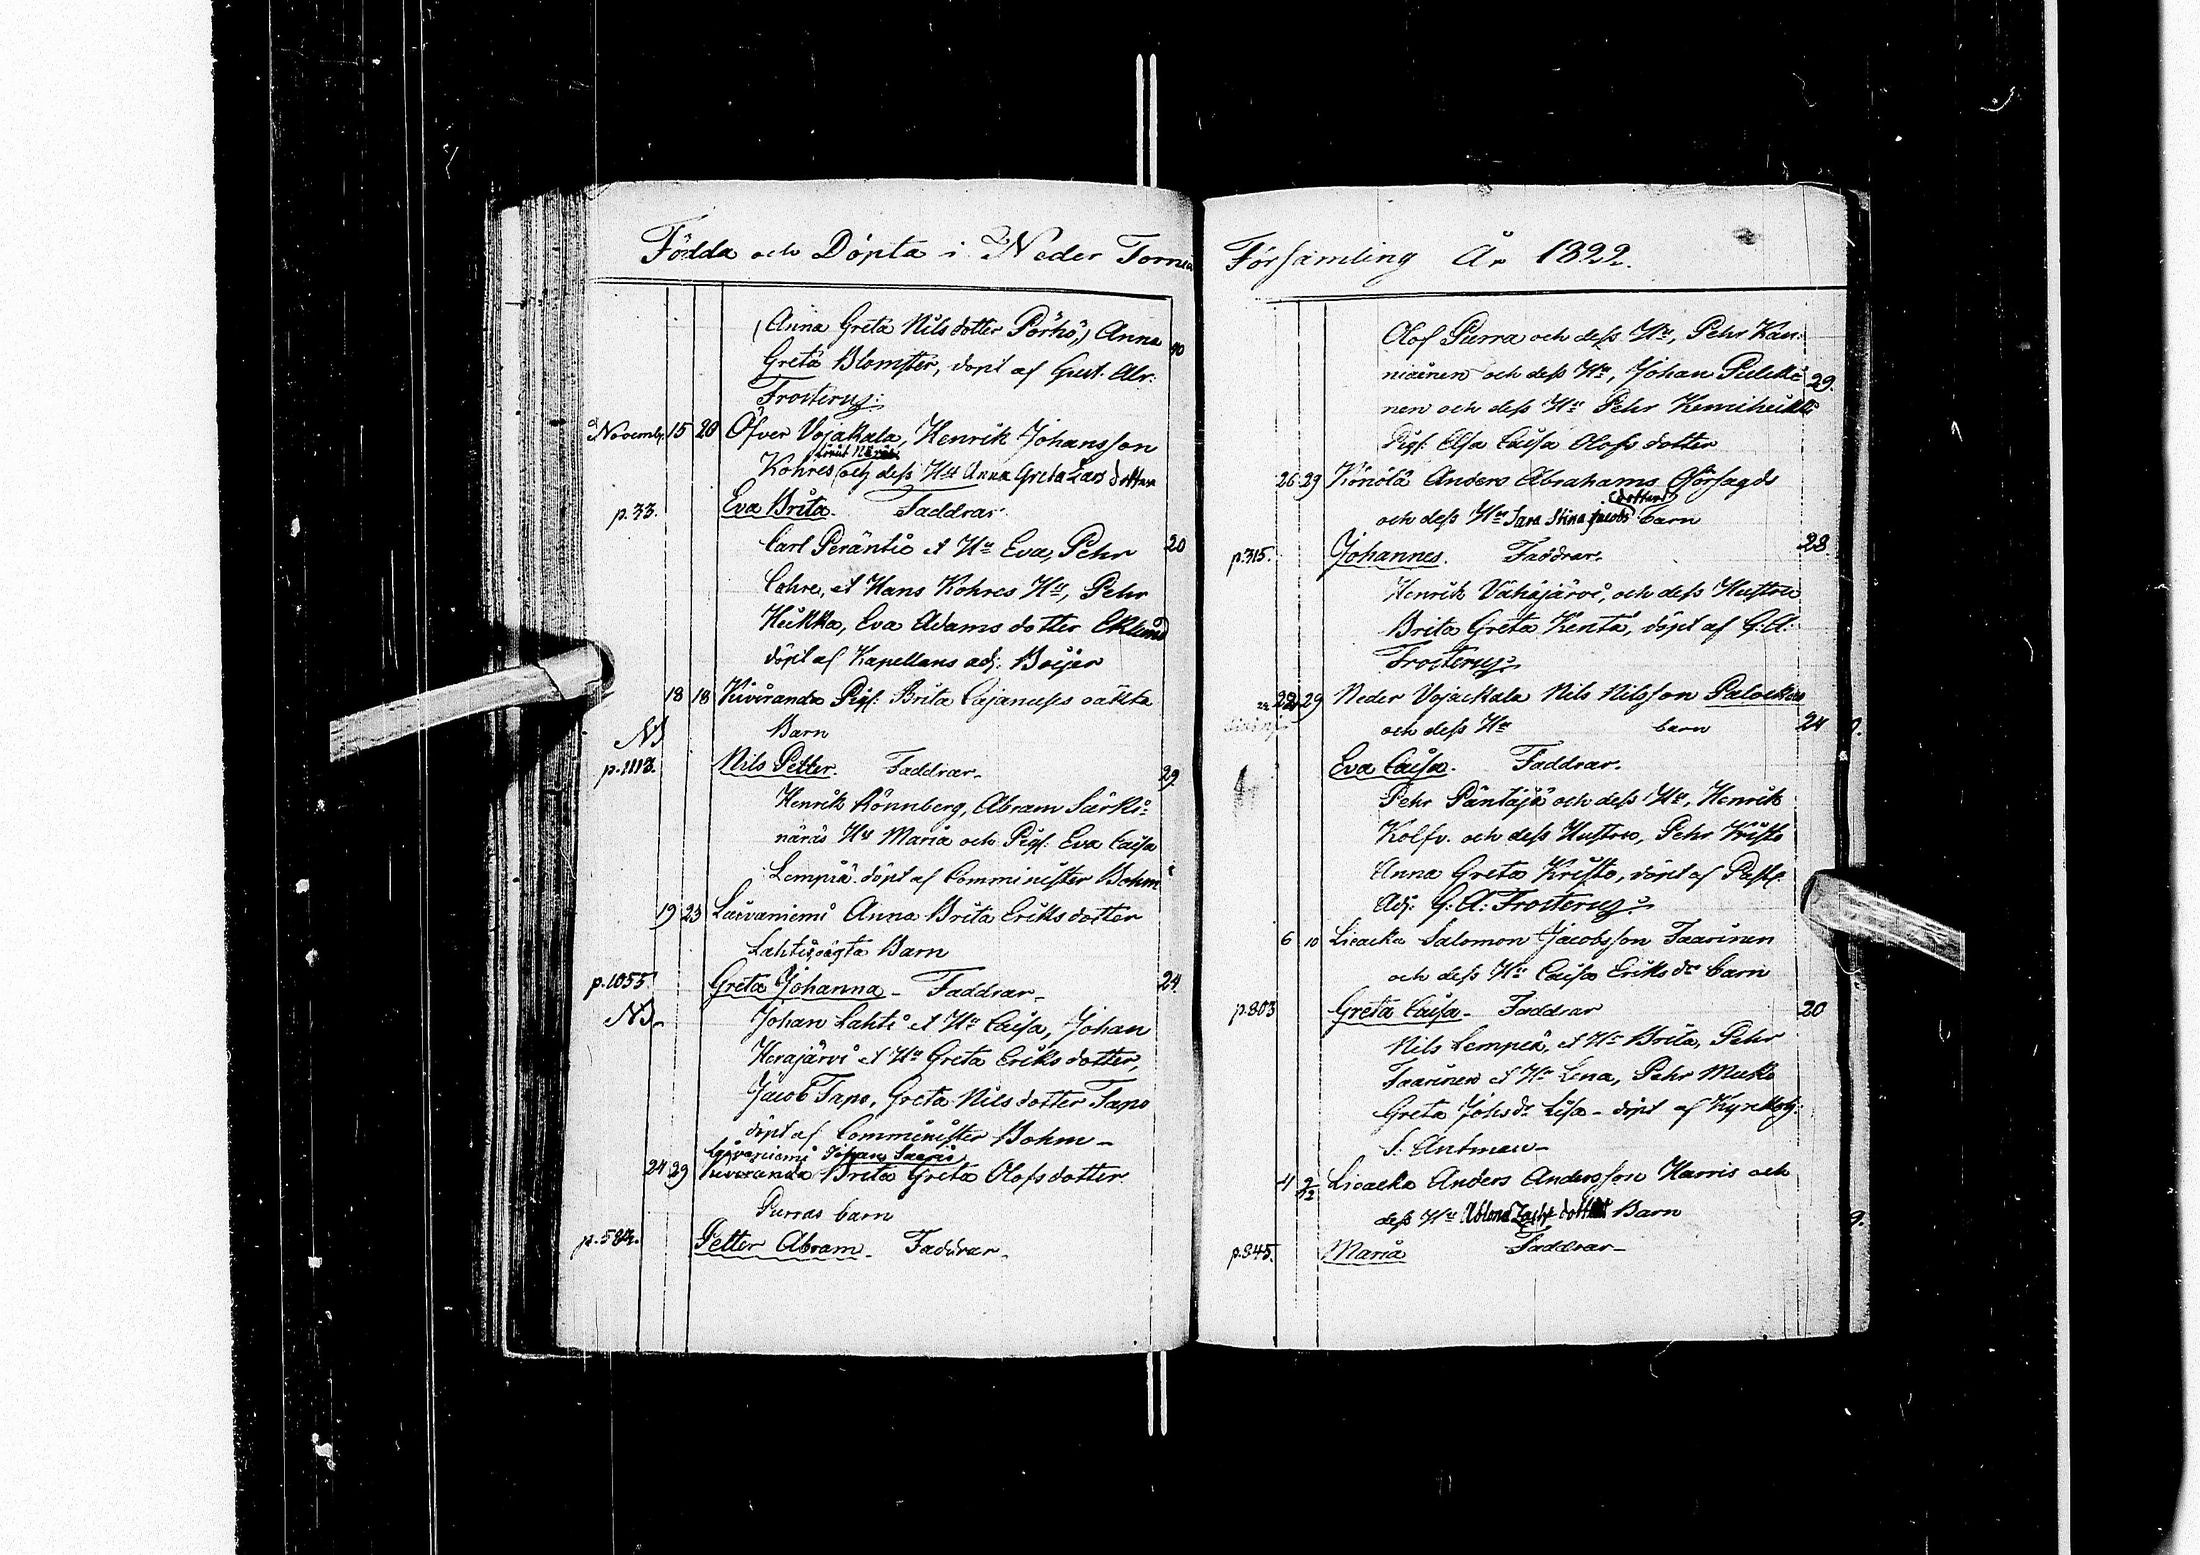 Födda och Döpta i Neder Tornea
(Anna Greta Nils dotter Pörhö,) Anna 40
Greta Blomster, döpt af Gust. Abr:
Frosterus:
Novemb. 15 20 Öfver Vojakala, Henrik Johansson
Kohres och dess Hu Anna Greta Lars dotter
p.33. Eva Brita. Faddrar
Carl Peräntie et Hu Eva, Pehr 20
Cohre, et Hans Kohres Hu, Pehr
Heikka, Eva Adams dotter Eklund
döpt af Kapellans adj. Boijer
18 18 Kiviranda Pig. Brita Cajanuses oäkta
NB Barn
p.1113. Nils Petter. Faddrar. 29
Henrik Rönnberg, Abram Särki-
näräs Hu Maria och Pig. Eva Caisa
Lempiä döpt af Comminister Bohm
19 23 Laivaniemi Anna Brita Eriks dotter
Lahtis oägta Barn
p.1055 Greta Johanna - Faddrar - 24
NB. Johan Lahti et Hu Caisa, Johan
Herajärvi et Hu Greta Eriks dotter,
Jacob Tapo, Greta Nils dotter Tapo
döpt af Comminister Bohm -
Laivaniemi Johan
24 29 Kiviranda Brita Greta Olofsdotter
Purras barn
p.584. Petter Abram - Faddrar -
Församling År 1822.
Olof Purra och dess Hu, Pehr Kan-
niainen och dess Hu, Johan Pulcki 29.
nen och dess Hu Pehr Kemiheikki
Pig. Elsa Caisa Olofs dotter
26 29 Könölä Anders Abrahams
(dotters)
och dess Hu Sara Stina Jacobs barn
p.315. Johannes. Faddrar. 28
Henrik Vähäjärvi, och dess Hustru
Brita Greta Kenta, döpt af G.A:
Frosterus
29 Neder Vojackala Nils Nilsson
och dess Hu barn 24
Eva Caisa. Faddrar.
Pehr Päntäjä och dess Hu, Henrik
Kolfv. och dess Hustru, Pehr Kristo
Anna Greta Kristo, döpt af Past.
Adj: G: A: Frosterus
6 10 Liacka Salomon Jacobsson Taarinen
och dess Hu Caisa Eriks dr barn
p.803 Greta Caisa - Faddrar 20
Nils Lempeä, et Hu Brita, Pehr
Taarinen et Hu Lena, Pehr Mukk
Greta Johs dr Lisa - döpt af Kyrkoh:
S. Antman -
4 Liacka Anders Andersson Harris och
dess Hu Barn
p.845. Maria Faddrar -